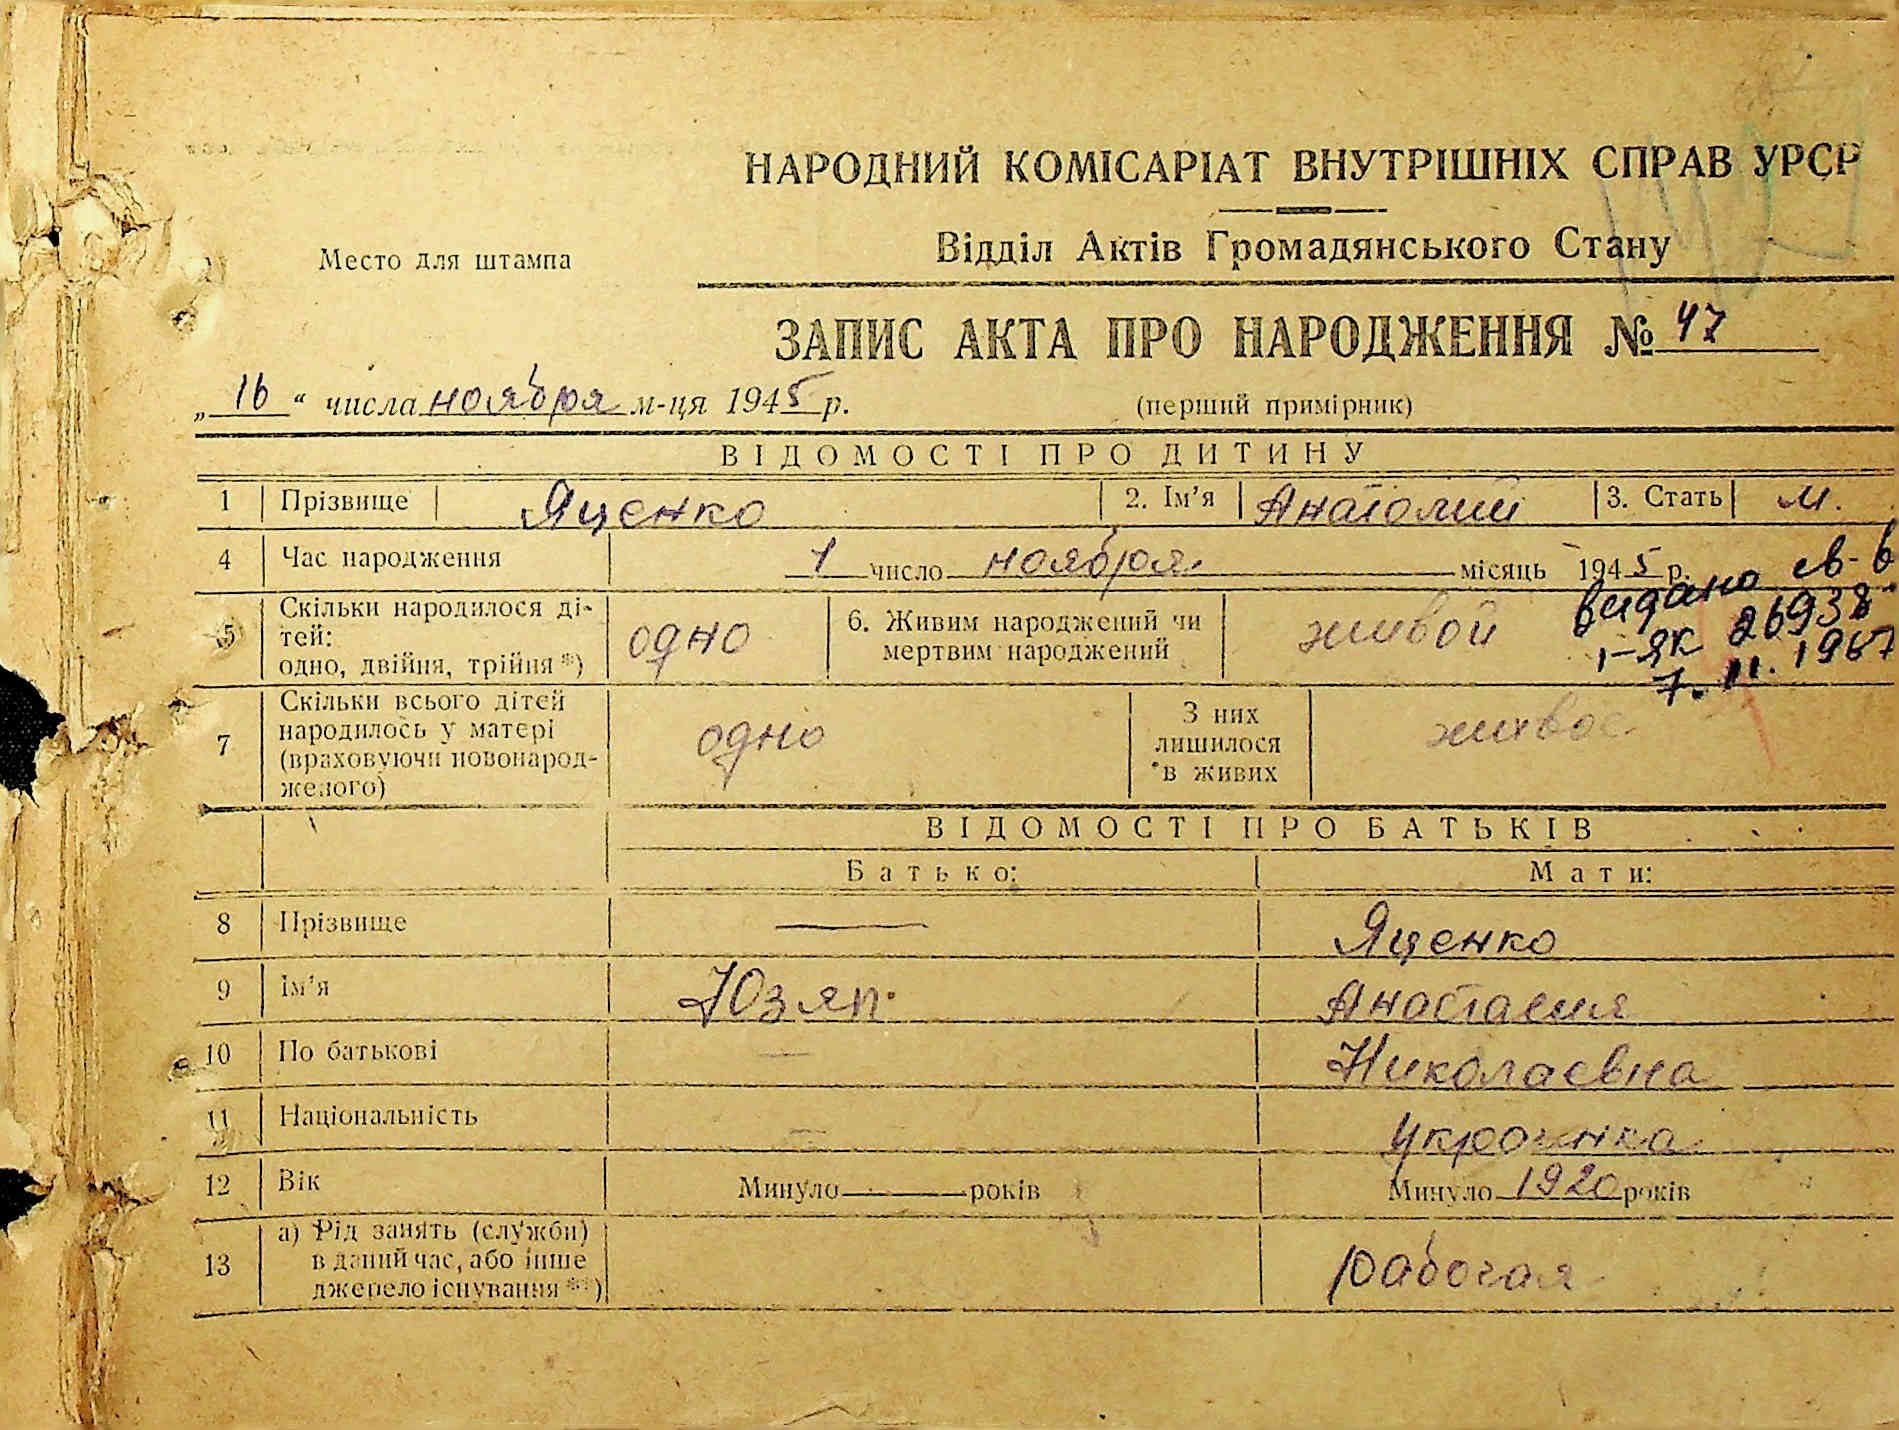 НАРОДНИЙ КОМІСАРІАТ ВНУТРІШНІХ СПРАВ УРСР
Відділ Актів Громадянського Стану
Место для штампа
ЗАПИС АКТА ПРО НАРОДЖЕННЯ № 47
„16“ числа ноября м-ця 1945 р.
(перший примірник)
ВІДОМОСТІ ПРО ДИТИНУ
1 Прізвище Яценко 2. Ім’я Анатолий 3. Стать м.
4 Час народження 1 число ноября місяць 1945 р.
видано св-в
I-ЯК 26938
7. II. 1967
5 Скільки народилося ді-
тей:
одно, двійня, трійня *)
одно
6. Живим народжений чи
мертвим народжений
живой
7 Скільки всього дітей
народилось у матері
(враховуючи новонарод-
женого)
одно
З них
лишилося
в живих
живое
ВІДОМОСТІ ПРО БАТЬКІВ
Батько: Мати:
8 Прізвище — Яценко
9 Ім’я Юзяп Анастасия
10 По батькові — Николаевна
11 Національність — украинка
12 Вік Минуло — років Минуло 1920 років
13 а) Рід занять (служби)
в даний час, або інше
джерело існування **)
рабочая